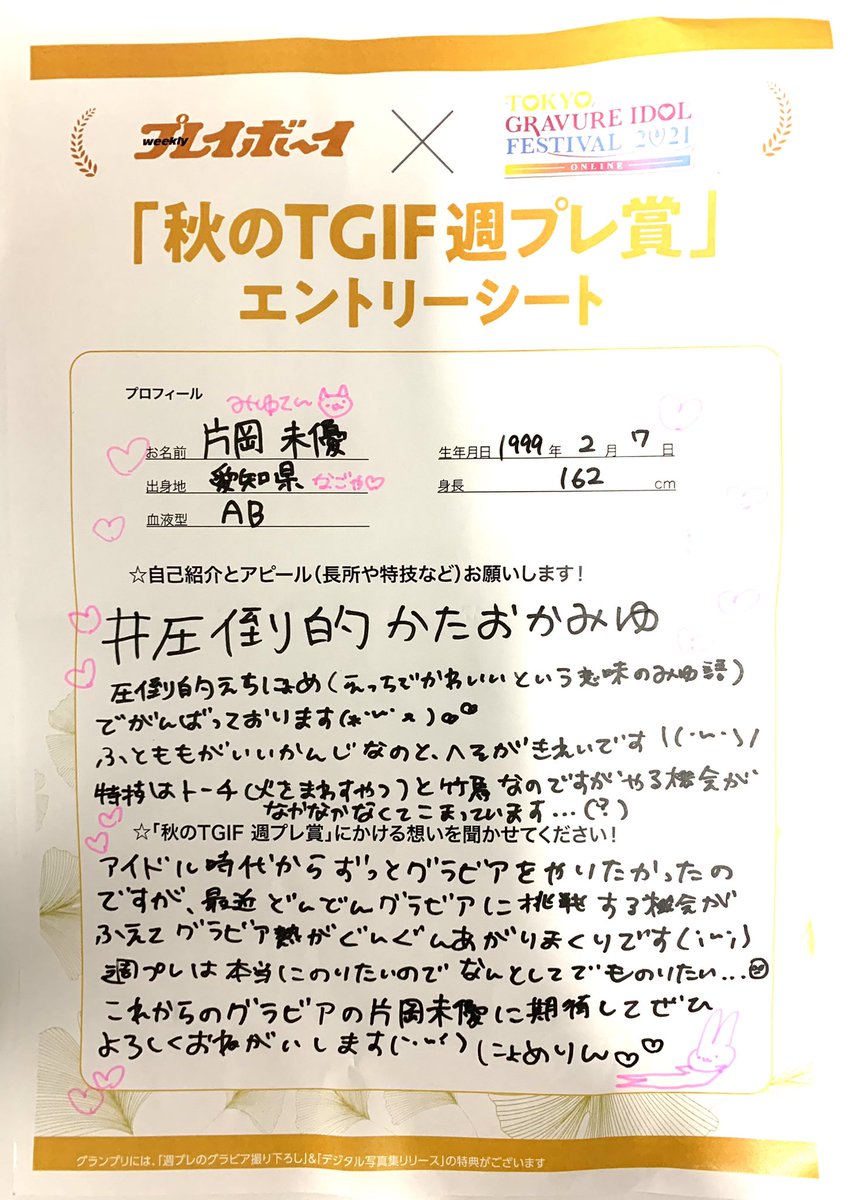 weekly プレイボーイ
TOKYO
GRAVURE IDOL
FESTIVAL 2021
ONLINE
「秋のTGIF 週プレ賞」
エントリーシート
プロフィール
みゆてぃ
お名前 片岡 未優
生年月日 1999 年 2 月 7 日
出身地 愛知県 なごや
身長 162 cm
血液型 AB
☆自己紹介とアピール(長所や特技など)お願いします!
#圧倒的かたおかみゆ
圧倒的えちにょめ(えっちでかわいいという意味のみゆ語)
でがんばっております
ふとももがいいかんじなのと、へそがきれいです
特技はトーチ(火をまわすやつ)と竹馬なのですがやる機会が
なかなかなくてこまっています…(?)
☆「秋のTGIF 週プレ賞」にかける想いを聞かせてください!
アイドル時代からずっとグラビアをやりたかったの
ですが、最近どんどんグラビアに挑戦する機会が
ふえてグラビア熱がぐんぐんあがりまくりです(;ω;)
週プレは本当にのりたいのでなんとしてでものりたい…
これからのグラビアの片岡未優に期待してぜひ
よろしくおねがいします(´・ω・`) にょめりん
グランプリには、「週プレのグラビア撮り下ろし」&「デジタル写真集リリース」の特典がございます